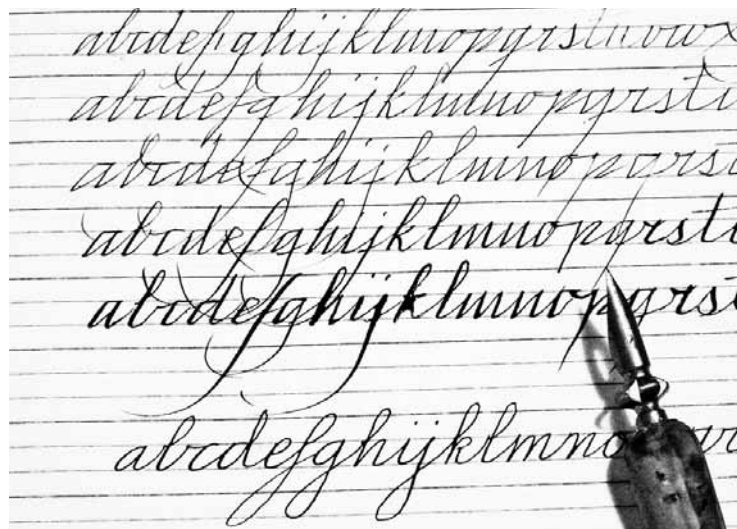 abcdefghijklmnopqrstuvwx
abcdefghijklmnopqrst
abcdefghijklmnopqrs
abcdefghijklmnopqrst
abcdefghijklmnopqrst
abcdefghijklmno